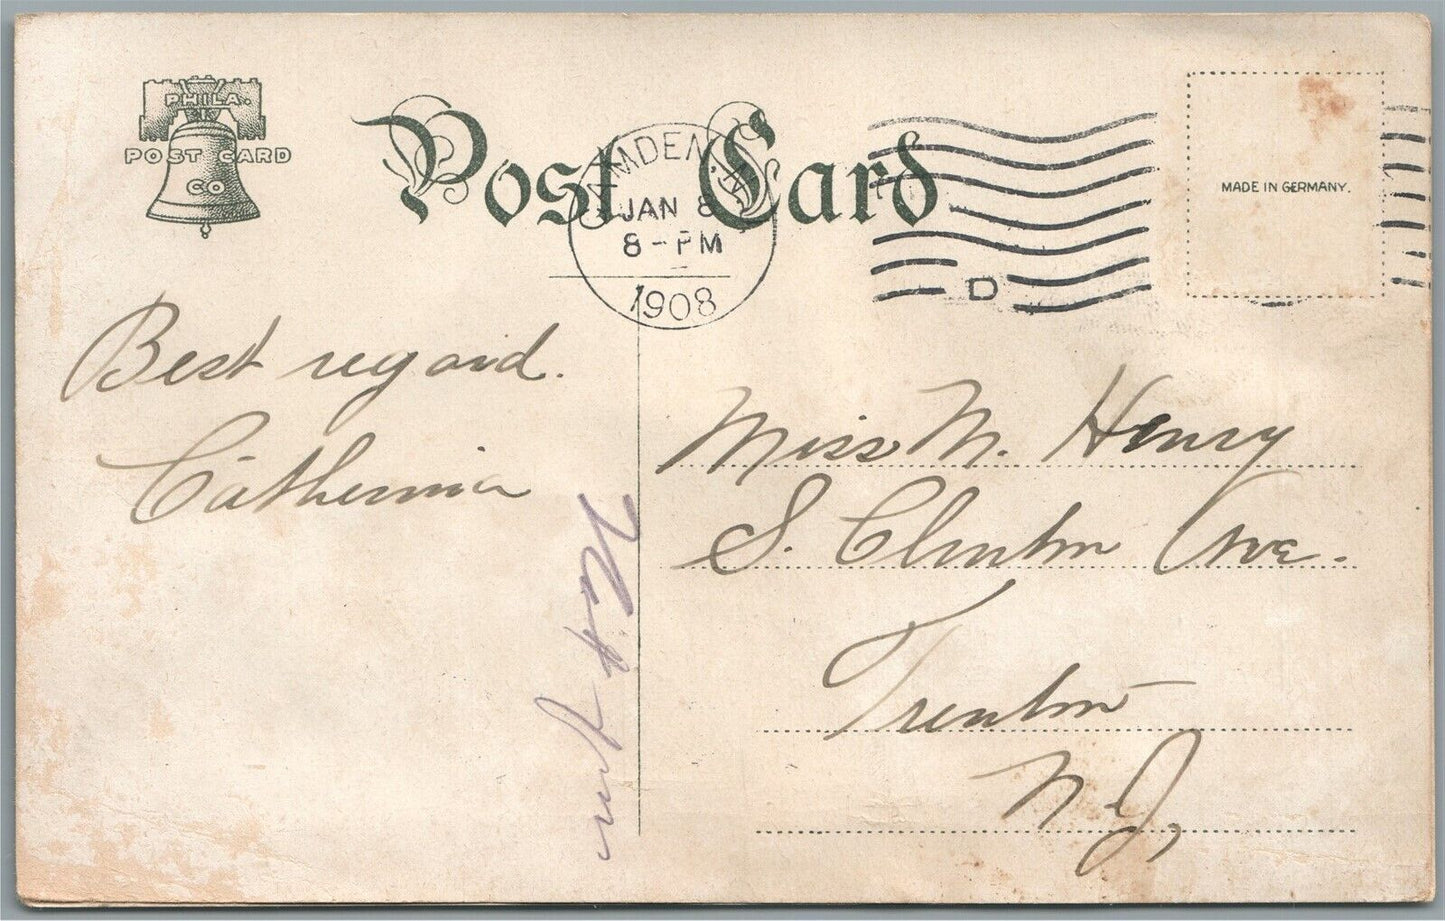 PHILA.
POST CARD
CO
Post Card
CAMDEN, N.J.
JAN 8
8-PM
1908
D
MADE IN GERMANY.
Best regard.
Catherine
Miss M. Henry
S. Clinton Ave.
Trenton
N.J,